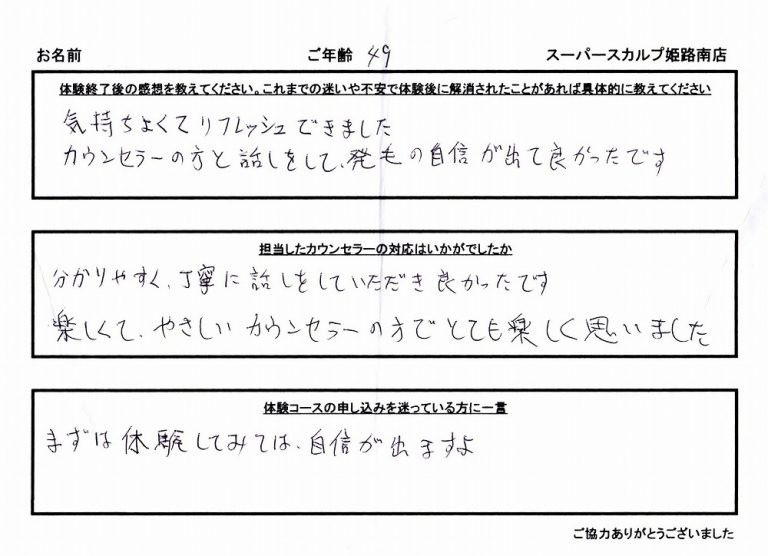 お名前 ご年齢 49 スーパースカルプ姫路南店
体験終了後の感想を教えてください。これまでの迷いや不安で体験後に解消されたことがあれば具体的に教えてください
気持ちよくてリフレッシュできました
カウンセラーの方と話しをして、発毛の自信が出て良かったです
担当したカウンセラーの対応はいかがでしたか
分かりやすく、丁寧に話しをしていただき良かったです
楽しくて、やさしいカウンセラーの方でとても楽しく思いました
体験コースの申し込みを迷っている方に一言
まずは体験してみては、自信が出ますよ
ご協力ありがとうございました